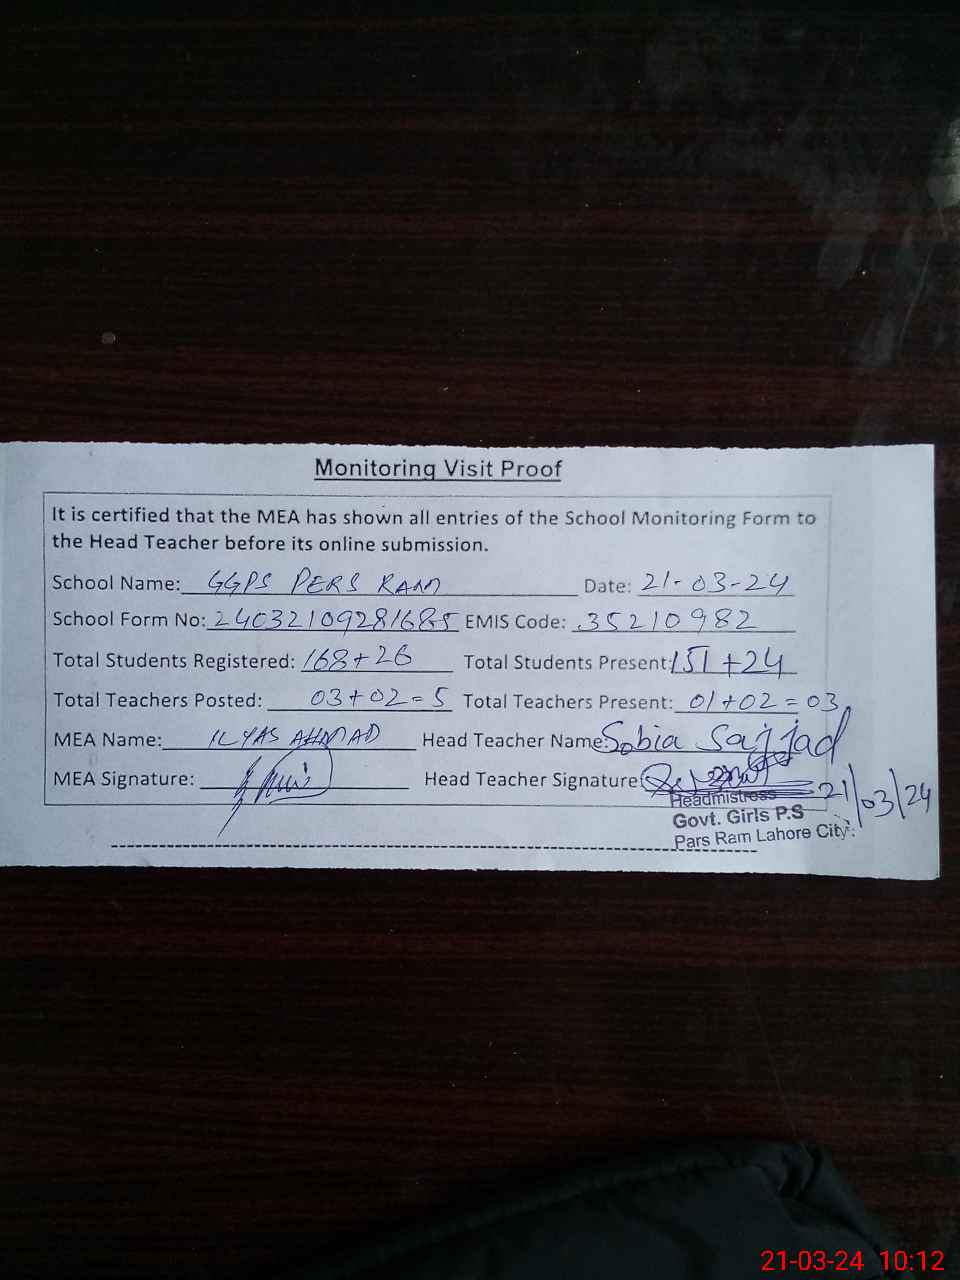 Monitoring Visit Proof
It is certified that the MEA has shown all entries of the School Monitoring Form to
the Head Teacher before its online submission.
School Name: GGPS PERS RAM Date: 21-03-24
School Form No: 24032109281685 EMIS Code: 35210982
Total Students Registered: 168+26 Total Students Present: 151+24
Total Teachers Posted: 03+02=5 Total Teachers Present: 01+02=03
MEA Name: ILYAS AHMAD Head Teacher Name: Sobia Sajjad
MEA Signature: Head Teacher Signature: 21/03/24
Headmistress
Govt. Girls P.S
Pars Ram Lahore City.
21-03-24 10:12